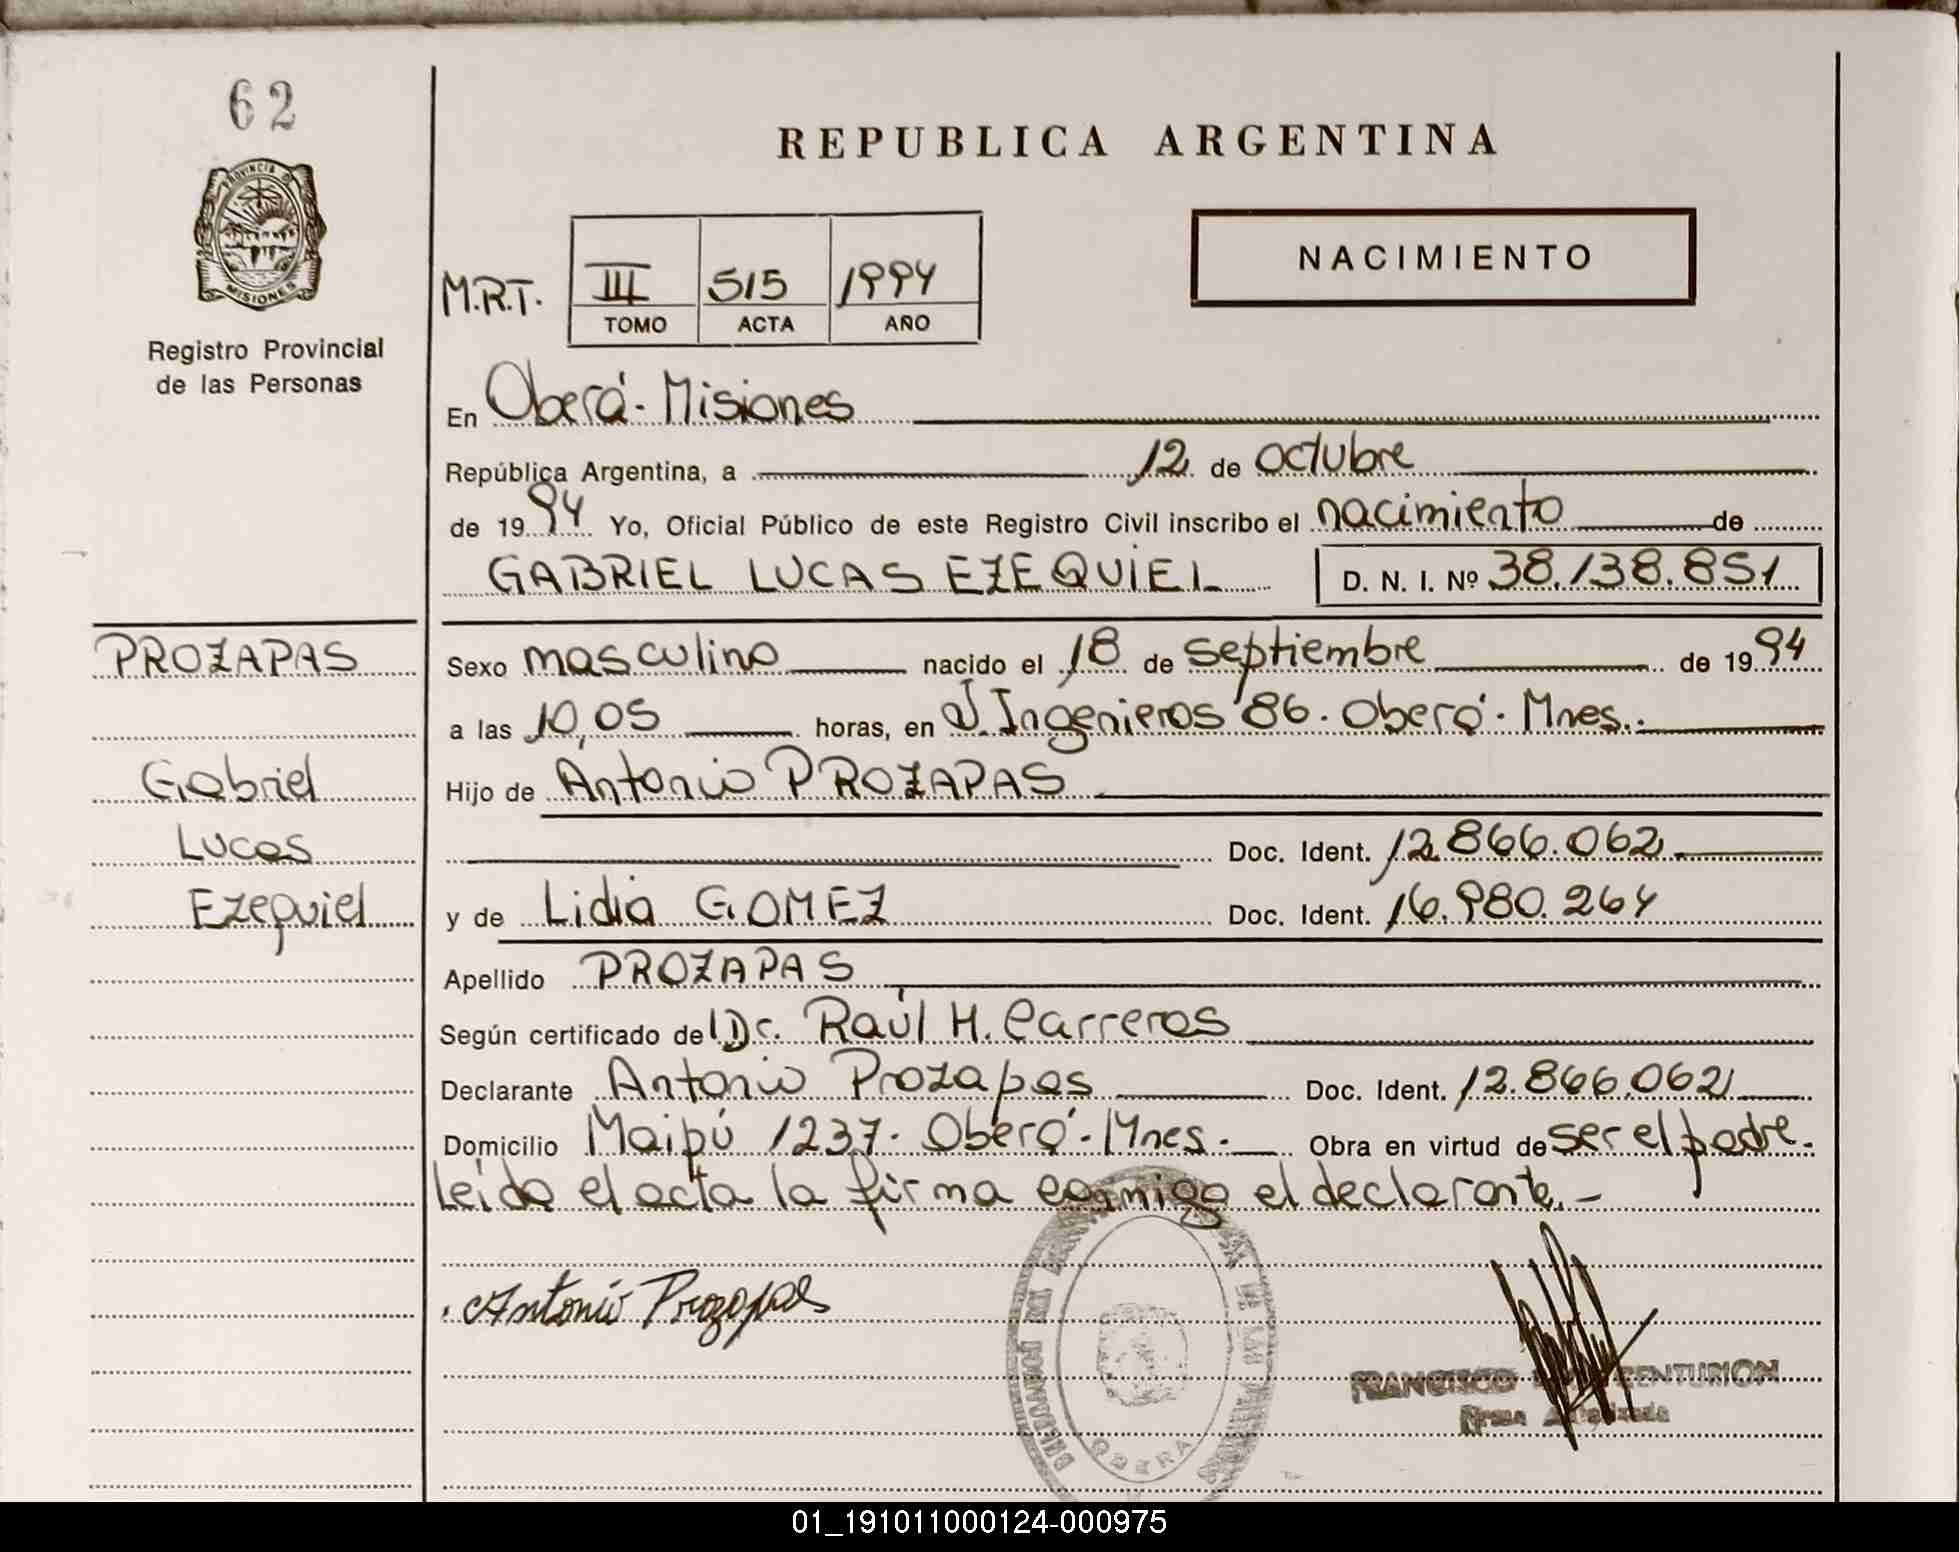 62
PROVINCIA D
MISIONES
Registro Provincial
de las Personas
REPUBLICA ARGENTINA
NACIMIENTO
M.R.T.
III 515 1994
TOMO ACTA AÑO
En Oberá - Misiones
República Argentina, a 12 de octubre
de 1994 Yo, Oficial Público de este Registro Civil inscribo el nacimiento de
GABRIEL LUCAS EZEQUIEL D. N. I. Nº 38.138.851
PROZAPAS
Gabriel
Lucas
Ezequiel
Sexo masculino nacido el 18 de septiembre de 1994
a las 10,05 horas, en J. Ingenieros 86. Oberá - Mnes.
Hijo de Antonio PROZAPAS
Doc. Ident. 12.866.062
y de Lidia GOMEZ Doc. Ident. 16.980.264
Apellido PROZAPAS
Según certificado del Dr. Raúl H. Carreros
Declarante Antonio Prozapas Doc. Ident. 12.866.062
Domicilio Maipú 1237. Oberá - Mnes. Obra en virtud de ser el padre.
leída el acta la firma conmigo el declarante.-
Antonio Prozapas
FRANCISCO CENTURION
Firma Autorizada
OBERA
01_191011000124-000975